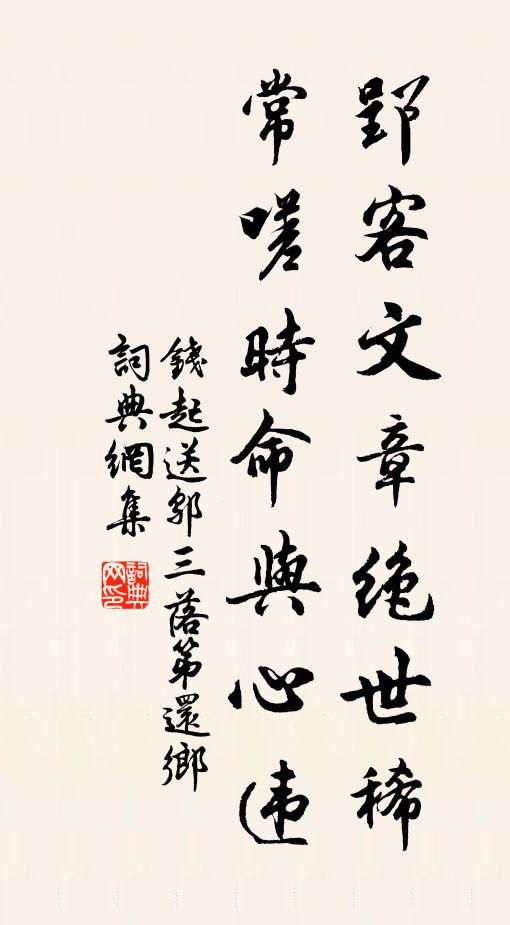 郢客文章絶世稀
常嗟時命與心违
錢起送鄔三落第還鄉
詞典網集
詞典网印